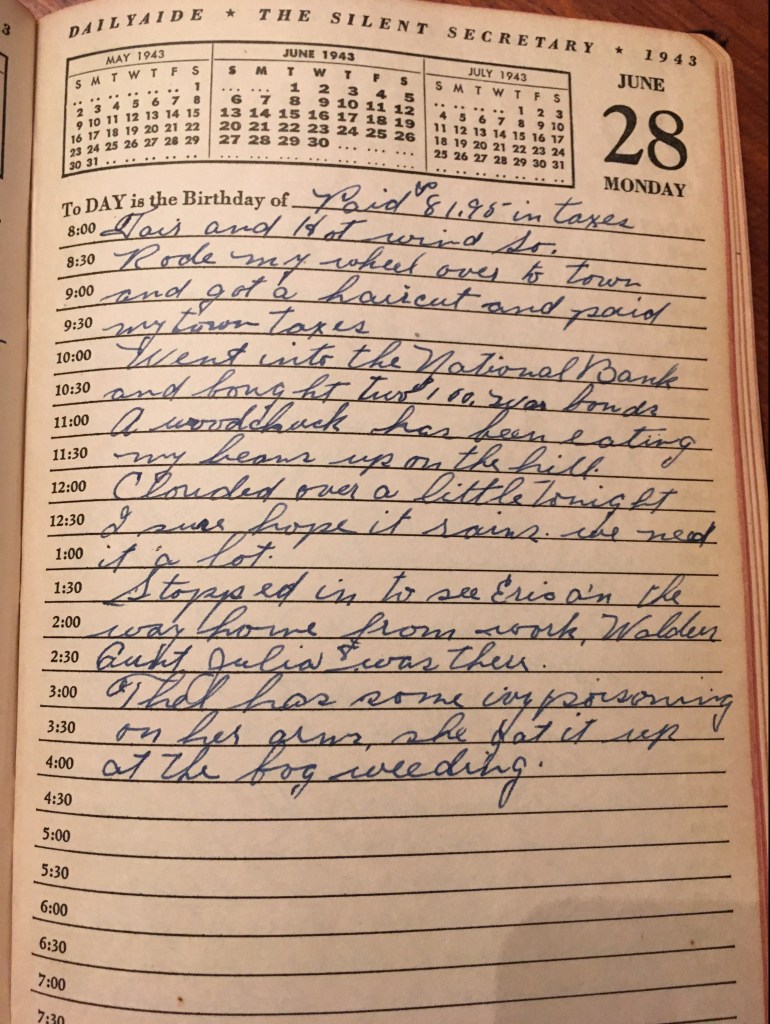 DAILYAIDE ★ THE SILENT SECRETARY ★ 1943
MAY 1943
S M T W T F S
.. .. .. .. .. .. 1
2 3 4 5 6 7 8
9 10 11 12 13 14 15
16 17 18 19 20 21 22
23 24 25 26 27 28 29
30 31 .. .. .. .. ..
JUNE 1943
S M T W T F S
.. .. 1 2 3 4 5
6 7 8 9 10 11 12
13 14 15 16 17 18 19
20 21 22 23 24 25 26
27 28 29 30 .. .. ..
JULY 1943
S M T W T F S
.. .. .. .. 1 2 3
4 5 6 7 8 9 10
11 12 13 14 15 16 17
18 19 20 21 22 23 24
25 26 27 28 29 30 31
JUNE
28
MONDAY
To DAY is the Birthday of Paid $81.95 in taxes
8:00 Fair and Hot wind So.
8:30 Rode my wheel over to town
9:00 and got a haircut and paid
9:30 my town taxes
10:00 Went into the National Bank
10:30 and bought two $100. war bonds
11:00 A woodchuck has been eating
11:30 my beans up on the hill.
12:00 Clouded over a little tonight
12:30 I sure hope it rains. we need
1:00 it a lot.
1:30 Stopped in to see Eric on the
2:00 way home from work, Walden
2:30 Aunt Julia & was there.
3:00 Thel has some ivy poisoning
3:30 on her arms, she got it up
4:00 at the bog weeding.
4:30
5:00
5:30
6:00
6:30
7:00
7:30